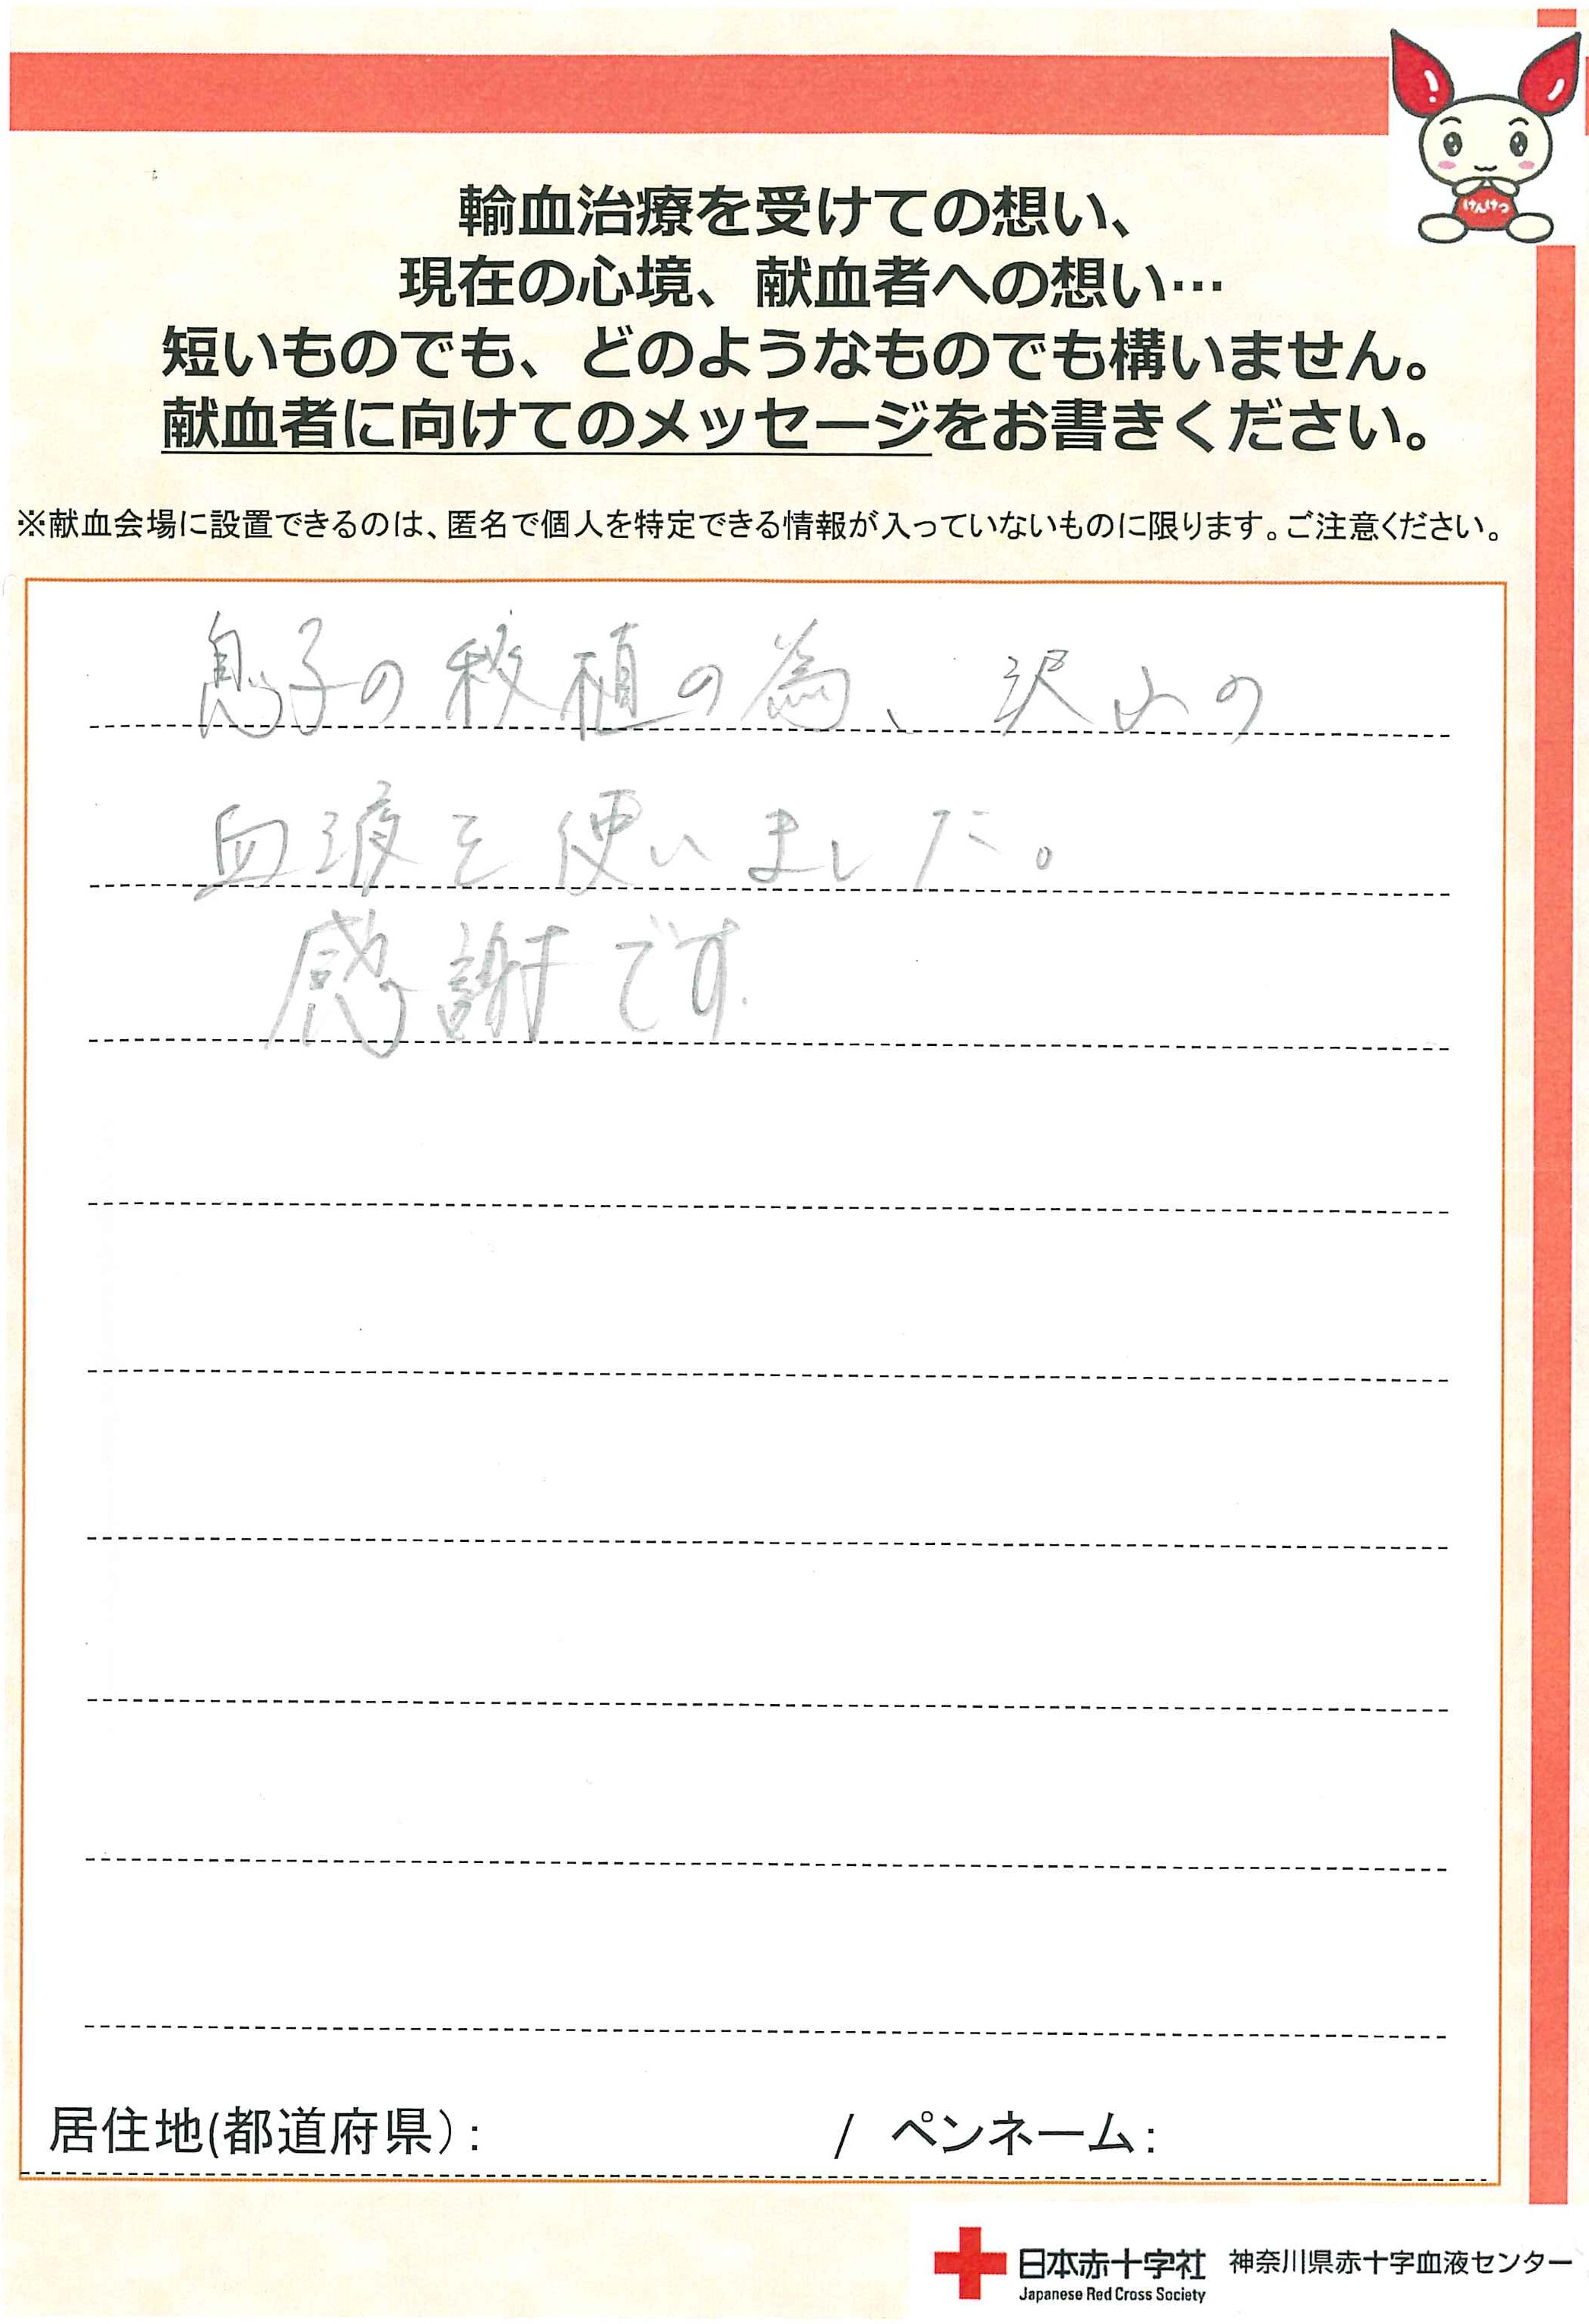 けんけつ
輸血治療を受けての想い、
現在の心境、献血者への想い…
短いものでも、どのようなものでも構いません。
献血者に向けてのメッセージをお書きください。
※献血会場に設置できるのは、匿名で個人を特定できる情報が入っていないものに限ります。ご注意ください。
息子の移植の為、沢山の
血液を使いました。
感謝です.
居住地(都道府県): / ペンネーム:
日本赤十字社 神奈川県赤十字血液センター
Japanese Red Cross Society